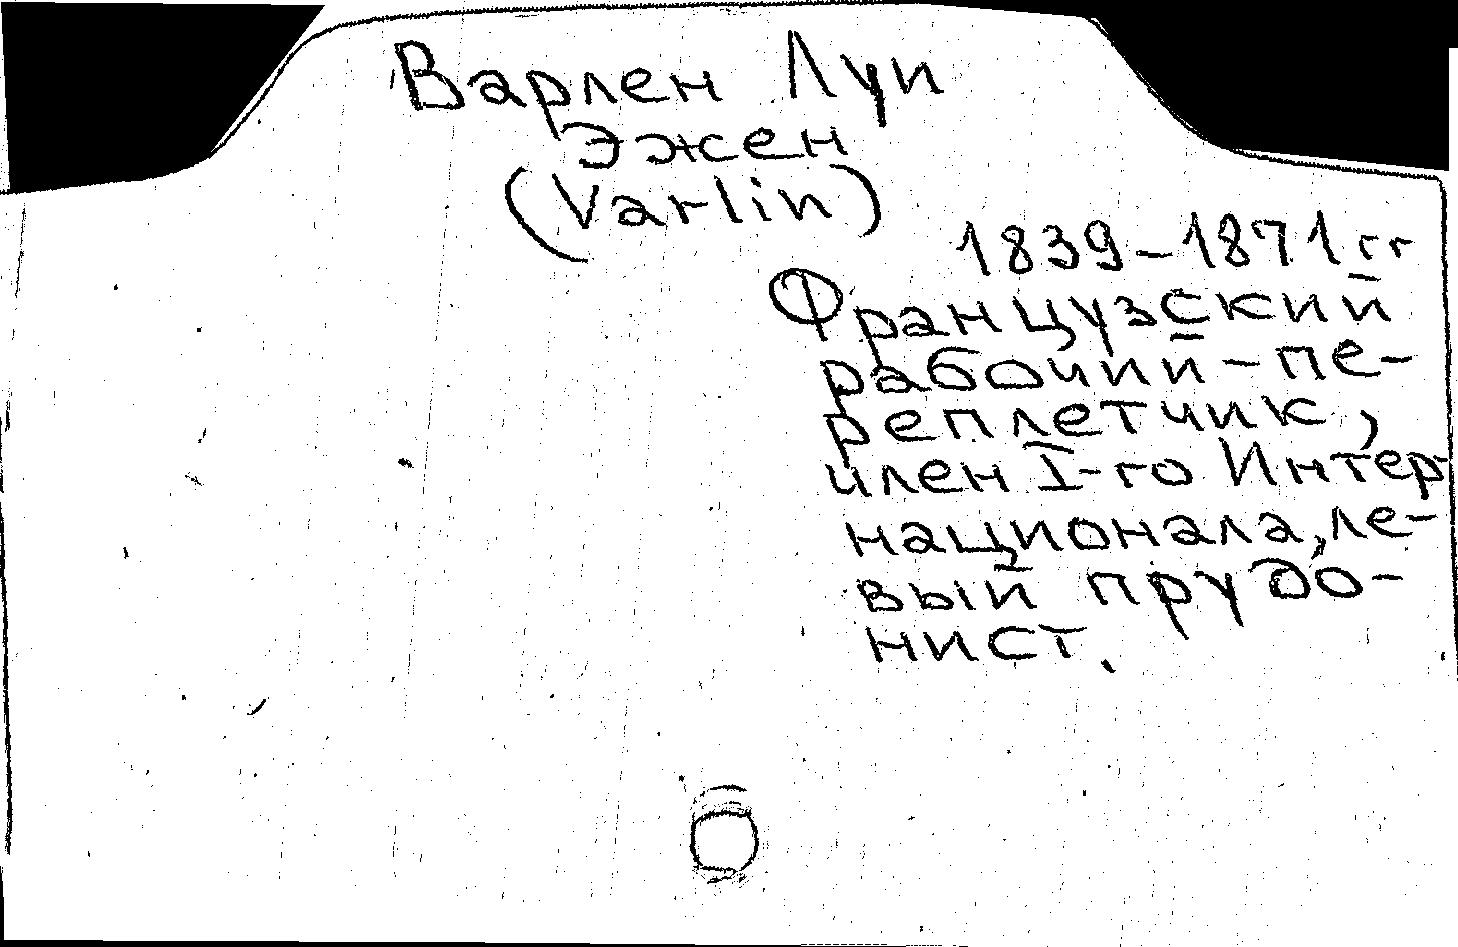 Варлен Луи
Эжен
(Varlin)
1839-1871 гг
Французский
рабочий-пе-
реплетчик,
член I-го Интер-
национала, ле-
вый прудо-
нист.